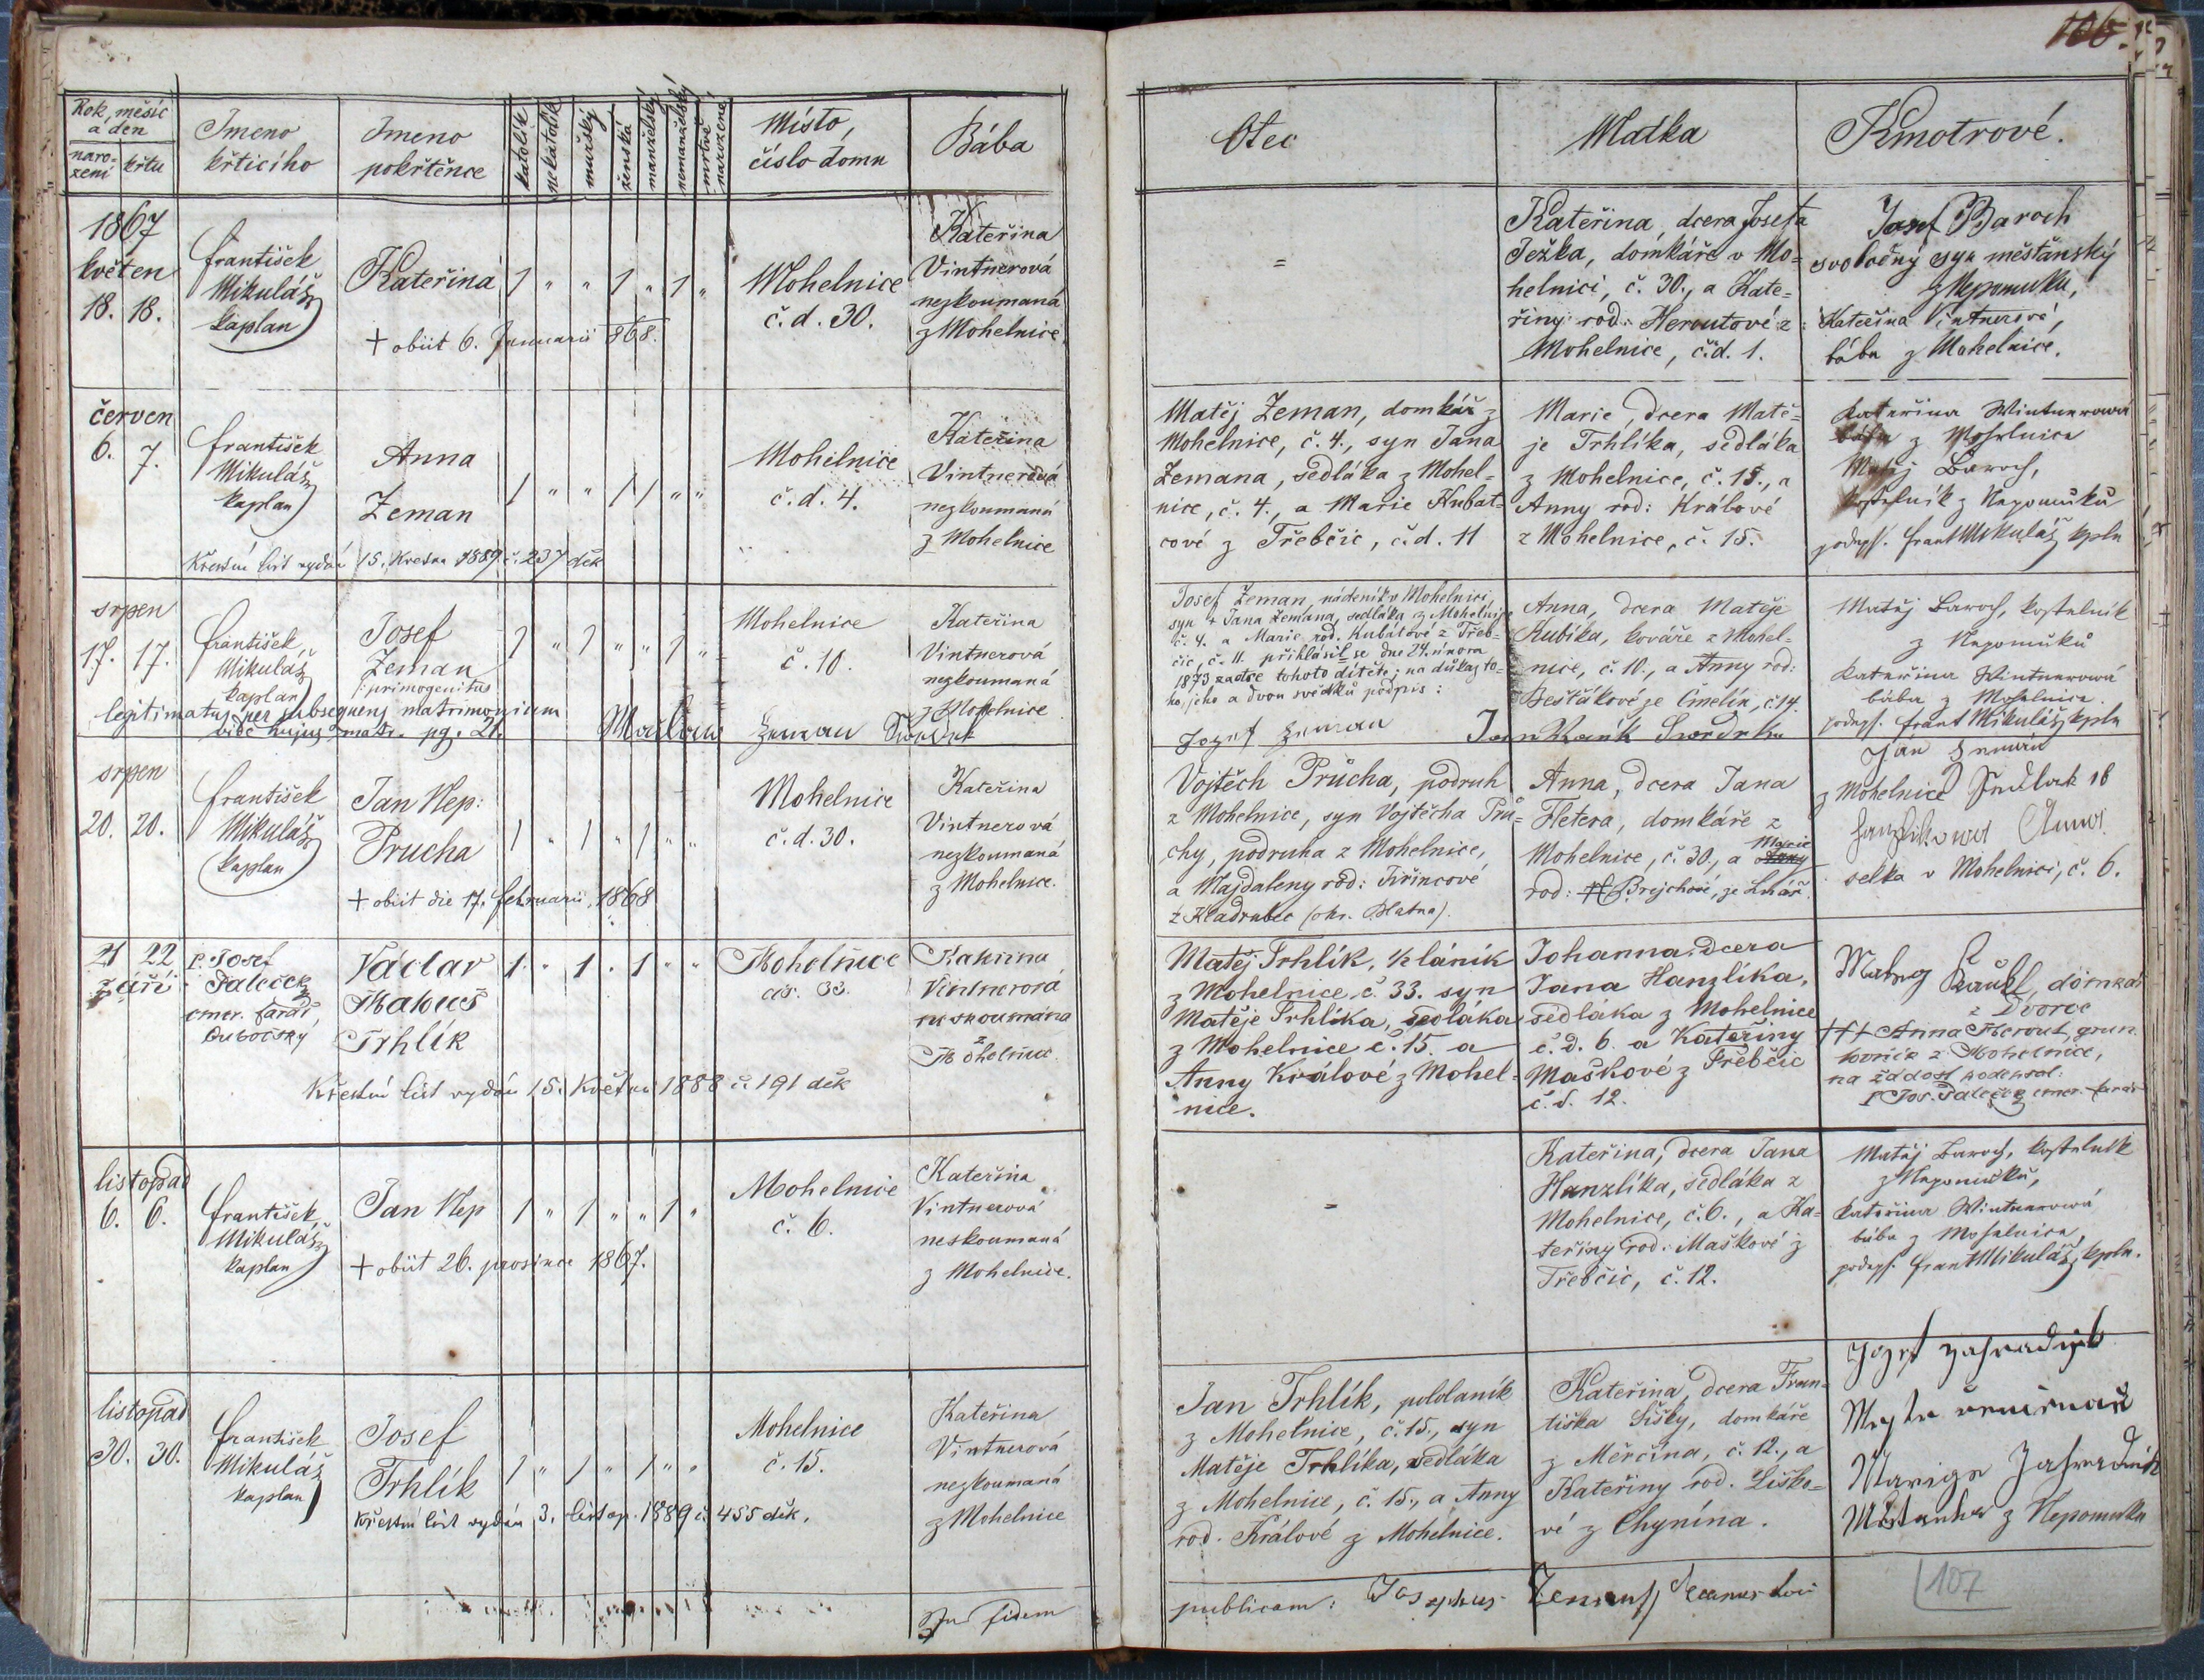 106.
Rok, měsíc a den
naro-
zení
křtu
Jmeno
křticího
Jmeno
pokřtěnce
katolík
nekatolík
mužský
ženská
manželský
nemanželský
mrtvě
narozené
Místo,
číslo domu
Bába
Otec
Matka
Kmotrové.
1867
květen
18. 18.
František
Mikuláš
kaplan
Kateřina
1 " " 1 " 1 "
+ obiit 6. Januarii 868.
Mohelnice
č. d. 30.
Kateřina
Vintnerová
nezkoumaná
z Mohelnice
=
Kateřina, dcera Josefa
Ježka, domkáře v Mo-
helnici, č. 30., a Kate-
řiny rod: Heroutové z
Mohelnice, č.d. 1.
Josef Baroch
svobodný syn měšťanský
z Nepomuku,
Kateřina
bába z Mohelnice.
červen
6. 7.
František
Mikuláš
kaplan
Anna
Zeman
1 " " 1 1 " "
Křestní list vydán 15. Května 1889 č. 237 děk
Mohelnice
č. d. 4.
Kateřina
Vintnerová
nezkoumaná
z Mohelnice
Matěj Zeman, domkář z
Mohelnice, č. 4., syn Jana
Zemana, sedláka z Mohel-
nice, č. 4., a Marie Kubat-
cové z Třebčic, č.d. 11
Marie, dcera Matě-
je Trhlíka, sedláka
z Mohelnice, č. 15., a
Anny rod: Králové
z Mohelnice, č. 15.
Kateřina Wintnerowá
bába z Mohelnice
Matěj Baroch,
kostelník z Nepomuku
podeps. Frant Mikuláš kpln
srpen
17. 17.
František
Mikuláš
kaplan
Josef
Zeman
: primogenitus
1 " 1 " " 1 "
legitimatus per subsequens matrimonium
vide hujus matr. pg. 21.
Mohelnice
č. 10.
Kateřina
Vintnerová
nezkoumaná
z Mohelnice
Josef Zeman, nádeník v Mohelnici,
syn + Jana Zemana, sedláka z Mohelnice
č. 4. a Marie rod. Kubátové z Třeb-
čic, č. 11. přihlásil se dne 24. února
1873 za otce tohoto dítěte; na důkaz to-
ho jeho a dvou svědků podpis:
Jozef Zeman
Anna, dcera Matěje
Kubíka, kováře z Mohel-
nice, č. 10., a Anny rod:
Bešťákové ze Čmelín, č. 14.
Matěj Baroch, kostelník
z Nepomuku
Kateřina Wintnerowá
bába z Mohelnice
podeps. Frant Mikuláš kpln
srpen
20. 20.
František
Mikuláš
kaplan
Jan Nep:
Prucha
1 " 1 " 1 " "
+ obiit die 17. februarii 1868
Mohelnice
č. d. 30.
Kateřina
Vintnerová
nezkoumaná
z Mohelnice.
Vojtěch Průcha, podruh
z Mohelnice, syn Vojtěcha Prů-
chy, podruha z Mohelnice,
a Majdaleny rod: Jiřincové
z Kladrubec (okr. Blatna).
Anna, dcera Jana
Hetera, domkáře z
Mohelnice, č. 30., a Marie
rod: Brejchové, ze Lnář.
Jan Zeman
z Mohelnice Sedlak 18
Anna
selka v Mohelnici, č. 6.
21 22
září
P. Josef
Paleček
emer. farář
Václav
Matouš
Trhlík
1 " 1 " 1 " "
Křestní list vydán 15. Května 1888 č. 191 děk
Mohelnice
čís. 33.
Kateřina
Vintnerová
neskoumána
z
Mohelnic
Matěj Trhlík, ½ láník
z Mohelnice č. 33. syn
Matěje Trhlíka, sedláka
z Mohelnice č. 15. a
Anny Králové z Mohel-
nice.
Johanna, dcera
Jana Hanzlíka,
sedláka z Mohelnice
č. d. 6. a Kateřiny
Maškové z Třebčic
č. d. 12.
domkář
z Dvorce
+++ Anna Herout,
z Mohelnice,
na žádost podepsal:
P. Jos. Paleček emer. farář
listopad
6. 6.
František
Mikuláš
kaplan
Jan Nep
1 " 1 " " 1 "
+ obiit 26. prosince 1867.
Mohelnice
č. 6.
Kateřina
Vintnerová
neskoumaná
z Mohelnice.
=
Kateřina, dcera Jana
Hanzlíka, sedláka z
Mohelnice, č. 6., a Ka-
teřiny rod: Maškové z
Třebčic, č. 12.
Matěj Baroch, kostelník
z Nepomuku,
Kateřina Wintnerowá
bába z Mohelnice
podeps. Frant Mikuláš kpln.
listopad
30. 30.
František
Mikuláš
kaplan
Josef
Trhlík
1 " 1 " 1 " "
Křestní list vydán 3. listop. 1889 č. 455 děk.
Mohelnice
č. 15.
Kateřina
Vintnerová
nezkoumaná
z Mohelnice
Jan Trhlík, pololaník
z Mohelnice, č. 15., syn
Matěje Trhlíka, sedláka
z Mohelnice, č. 15., a Anny
rod. Králové z Mohelnice.
Kateřina, dcera Fran-
tiška Šišky, domkáře
z Měrčína, č. 12., a
Kateřiny rod. Liško-
vé z Chynína.
Jozef Zahradnik
z Nepomuku
In fidem
publicam: Josephus Zeman
107